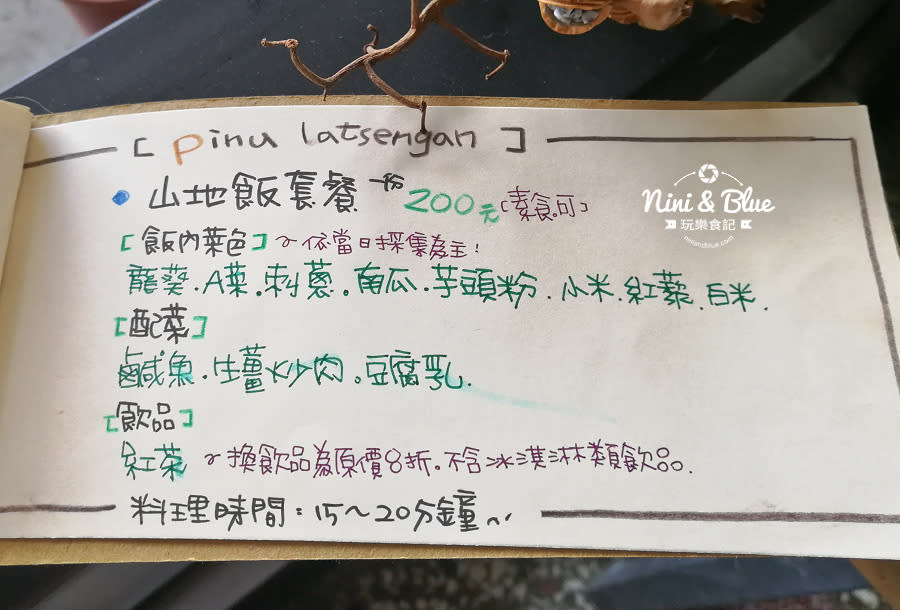 [ pinu latsengan ]
• 山地飯套餐 一份 200元 [素食可]
[飯內菜色] ~ 依當日採集為主!
龍葵.A菜.刺蔥.南瓜.芋頭粉.小米.紅藜.白米.
[配菜]
鹹魚.生薑炒肉.豆腐乳.
[飲品]
紅茶 ~ 換飲品為原價8折.不含冰淇淋類飲品.
料理時間:15~20分鐘~
Nini & Blue
玩樂食記
niniandblue.com